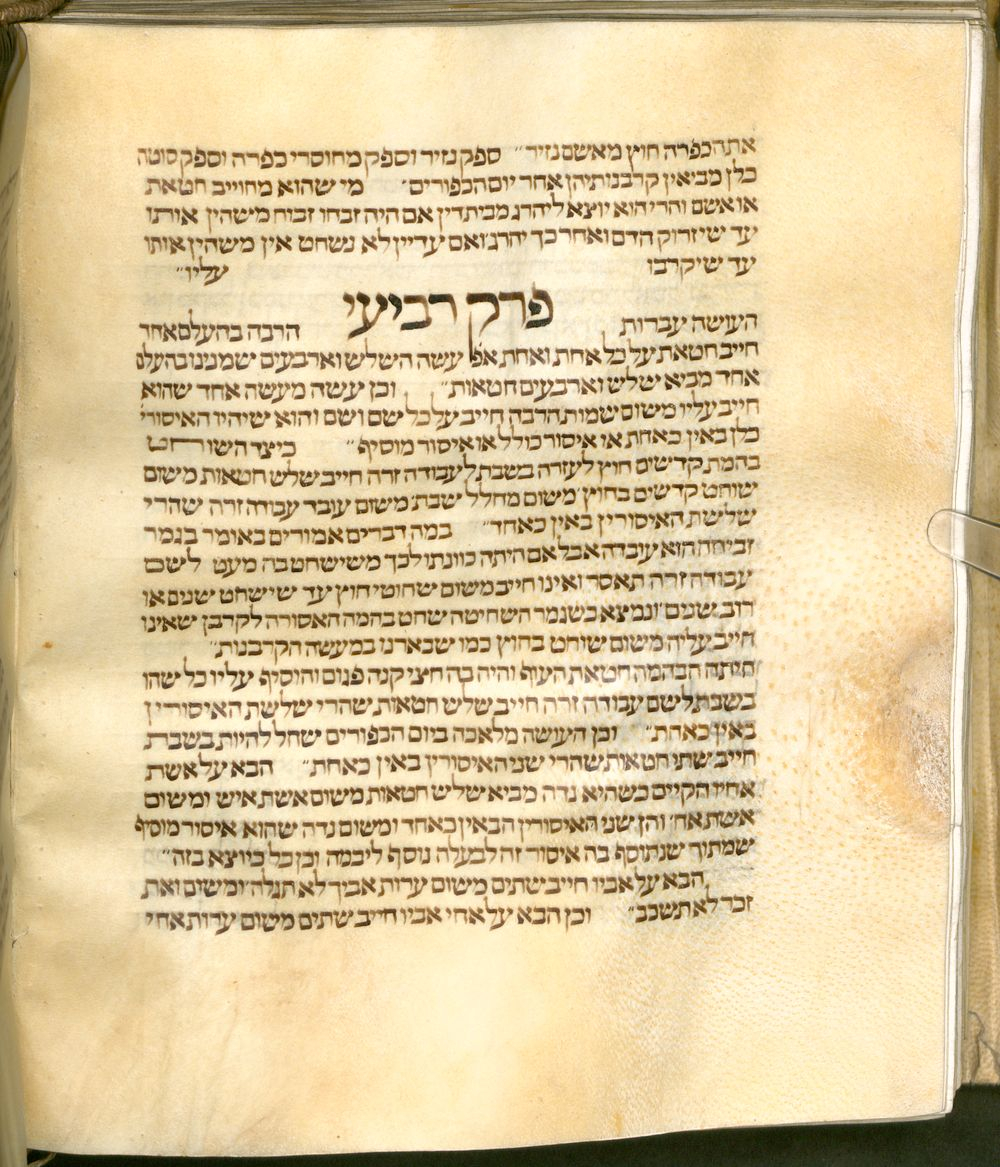 אתה כפרה חוץ מאשם נזיר״ ספק נזיר וספק מחוסרי כפרה וספק סוטה
כלן מביאין קרבנותיהן אחר יום הכפורים׳ מי שהוא מחוייב חטאת
או אשם והרי הוא יוצא ליהרג מבית דין אם היה זבחו זבוח משהין אותו
עד שיזרוק הדם ואחר כך יהרג׳ ואם עדיין לא נשחט אין משהין אותו
עד שיקרבו עליו״
פרק רביעי
העושה עברות הרבה בהעלם אחד
חייב חטאת על כל אחת ואחת אפ׳ עשה השלש וארבעים שמנינו בהעלם
אחד מביא שלש וארבעים חטאות״ וכן עשה מעשה אחד שהוא
חייב עליו משום שמות הרבה חייב על כל שם ושם והוא שיהיו האיסורי׳
כלן באין כאחת או איסור כולל או איסור מוסיף״ כיצד השוחט
בהמת קדשים חוץ לעזרה בשבת לעבודה זרה חייב שלש חטאות משום
שוחט קדשים בחוץ׳ משום מחלל שבת׳ משום עובד עבודה זרה שהרי
שלשת האיסורין באין כאחד״ במה דברים אמורים באומר בגמר
זביחה הוא עובדה אבל אם היתה כוונתו לכך משישחט בה מעט לשם
עבודה זרה תאסר ואינו חייב משום שחוטי חוץ עד שישחט שנים או
רוב שנים׳ ונמצא כשגמר השחיטה שחט בהמה האסורה לקרבן שאינו
חייב עליה משום שוחט בחוץ כמו שבארנו במעשה הקרבנות״
היתה הבהמה חטאת העוף והיה בה חצי קנה פגום והוסיף עליו כל שהו
בשבת לשם עבודה זרה חייב שלש חטאות שהרי שלשת האיסורין
באין כאחת״ וכן העושה מלאכה ביום הכפורים שחל להיות בשבת
חייב שתי חטאות שהרי שני האיסורין באין כאחת״ הבא על אשת
אחיו הקיים כשהיא נדה מביא שלש חטאות משום אשת איש ומשום
אשת אח׳ והן שני האיסורין הבאין כאחד ומשום נדה שהוא איסור מוסיף
שמתוך שנתוסף בה איסור זה לבעלה נוסף ליבמה וכן כל כיוצא בזה״
הבא על אביו חייב שתים משום ערות אביך לא תגלה׳ ומשום ואת
זכר לא תשכב״ וכן הבא על אחי אביו חייב שתים משום ערות אחי